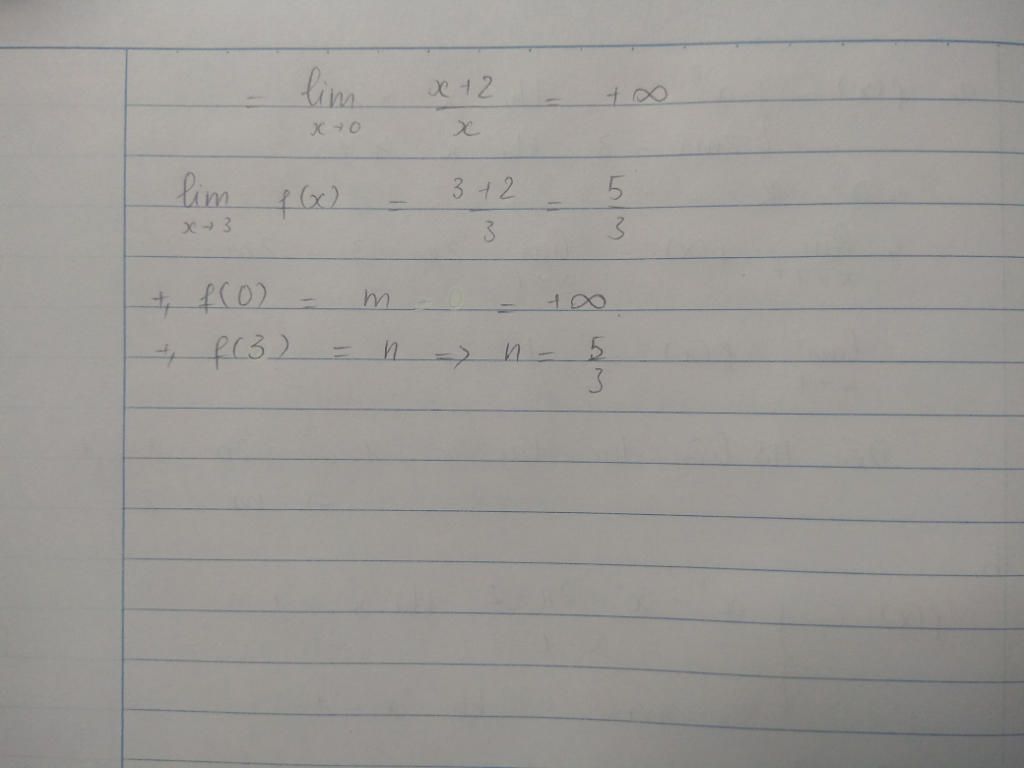 = lim x→0 x+2/x = +∞
lim x→3 f(x) = 3+2/3 = 5/3
+, f(0) = m = +∞
+, f(3) = n => n = 5/3